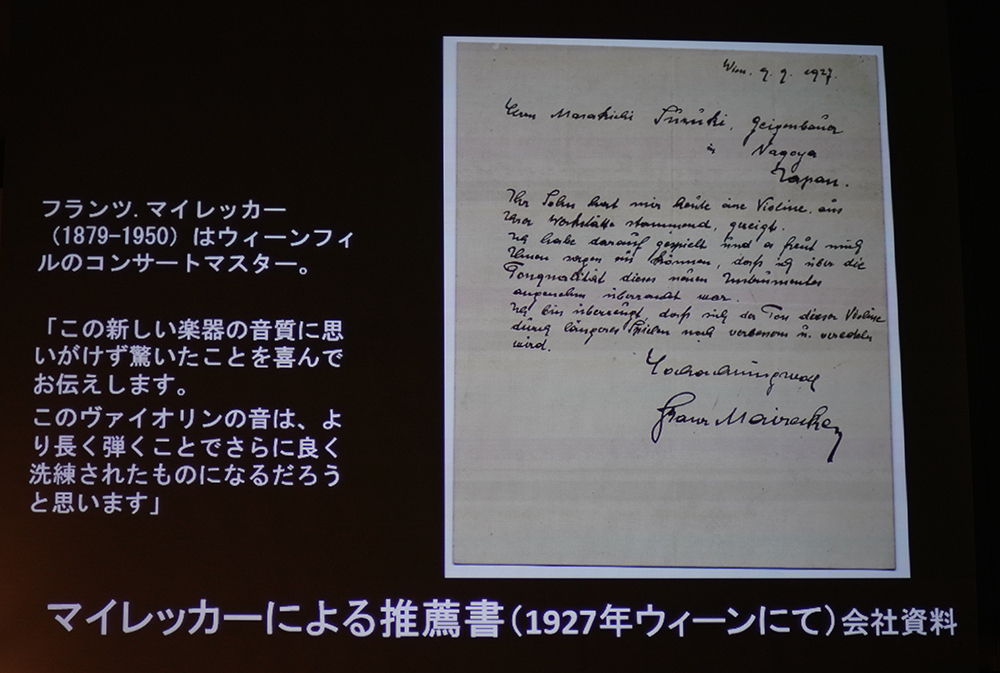 フランツ.マイレッカー
（1879-1950）はウィーンフィ
ルのコンサートマスター。
「この新しい楽器の音質に思
いがけず驚いたことを喜んで
お伝えします。
このヴァイオリンの音は、よ
り長く弾くことでさらに良く
洗練されたものになるだろう
と思います」
Wien. 9. 9. 1927.
Herrn Masakichi Suzuki, Geigenbauer
in Nagoya
Japan.
Ihr Sohn hat mir heute eine Violine, aus
Ihrer Werkstätte stammend, gezeigt.
Ich habe darauf gespielt und es freut mich
Ihnen sagen zu können, daß ich über die
Tonqualität dieses neuen Instrumentes
angenehm überrascht war.
Ich bin überzeugt, daß sich der Ton dieser Violine
durch längeres Spielen noch verbessern u. veredeln
wird.
Hochachtungsvoll
Franz Mairecker
マイレッカーによる推薦書（1927年ウィーンにて）会社資料